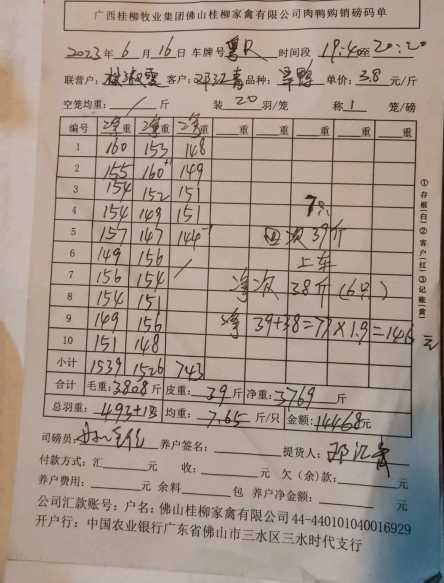 广西桂柳牧业集团佛山桂柳家禽有限公司肉鸭购销磅码单
2023年 6月 16日 车牌号 粤R 时间段 19:40至20:20
联营户: 客户: 邓江青 品种: 单价: 3.8 元/斤
空笼均重: / 斤 装 20 羽/笼 称 1 笼/磅
编号 净重 净重 净重 重 重 重 重
1 160 153 148
2 155 160 149
3 154 152 151
4 154 149 151 7只
5 157 147 144 次39斤
6 149 156 / 上车
7 156 154 净次38斤(6只)
8 154 151
9 149 156 39+38=77×1.9=146元
10 151 148
小计 1539 1526 743
合计 毛重:3808斤 皮重: 39 斤 净重:3769 斤
总羽重: 492+1 均重: 7.65 斤/只 金额:14468元
司磅员: 养户签名: 提货人: 邓江青
付款方式:汇 元 收: 元 欠(余)款: 元
养户费用: 元 余料 包 养户净金额: 元
公司汇款账号:户名:佛山桂柳家禽有限公司44-440101040016929
开户行:中国农业银行广东省佛山市三水区三水时代支行
①存根(白)②客户(红)③记账(黄)